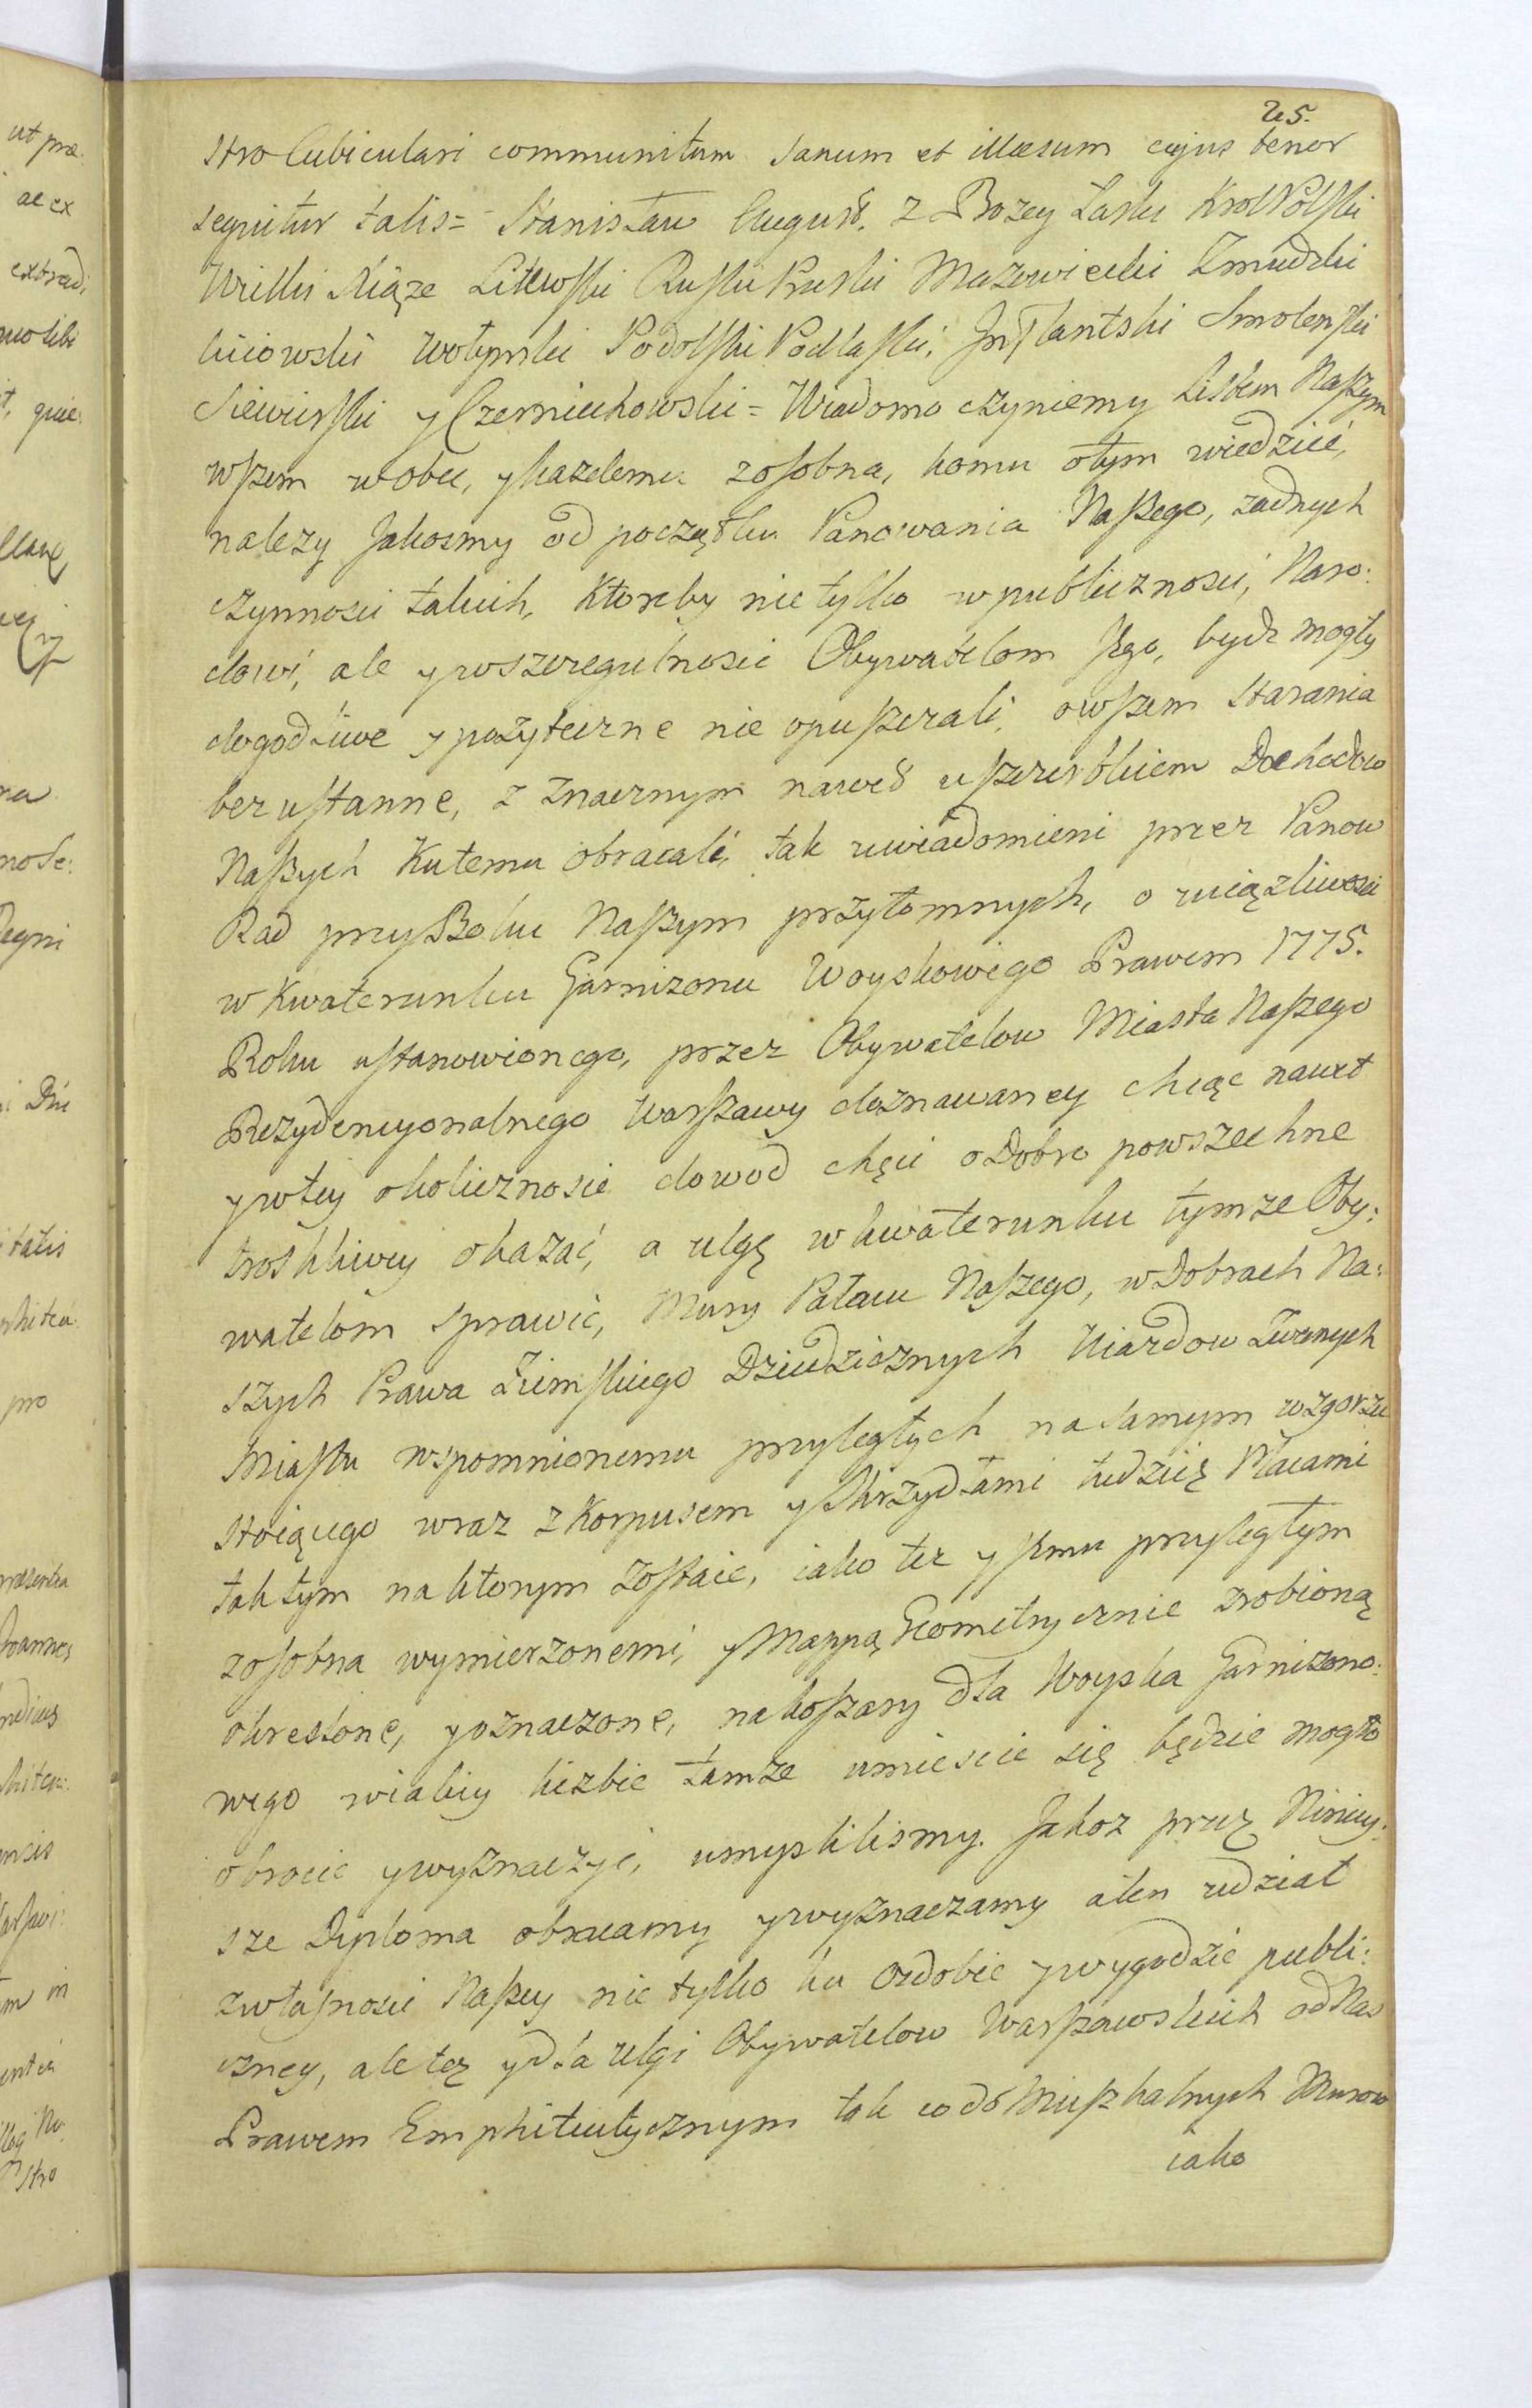 25.
stro Cubiculari communitum sanum et illæsum cujus tenor
sequitur talis = Stanisław August. z Bozey Łaski Krol Polski
Wielki Xiąze Litewski Ruski Pruski Mazowiecki Zmudzki
kiiowski wołynski Podolski Podlaski, Inflantski Smolenski
Siewierski y Czerniechowski = Wiadomo czyniemy Listem Naszym
wszem wobec, y kazdemu zosobna, komu otym wiedzieć,
nalezy Jakosmy od początku Panowania Naszego, zadnych
czynnosci takich, Ktoreby nie tylko w publicznosci, Naro:
dowi, ale y wszczegulnosci Obywatelom Jego, bydz mogły
dogodliwe y pozyteczne nie opuszczali, owszem starania
bez ustanne, z znacznym nawet uszczerbkiem Dochodow
Naszych Kutemu obracali, tak uwiadomieni przez Panow
Rad przy Boku Naszym przytomnych, o uciązliwosci
w Kwaterunku Garnizonu Woyskowego Prawem 1775.
Roku ustanowionego, przez Obywatelow Miasta Naszego
Rezydencyonalnego Warszawy doznawaney chcąc nawet
y wtey okolicznosci dowod chęci o Dobro powszechne
troskliwey okazać, a ulgę w kwaterunku tymze Oby:
watelom sprawić, Mury Pałacu Naszego, w Dobrach Na:
szych Prawa Ziemskiego Dziedzicznych Uiazdow Zwanych
Miastu wspomnionemu przyległych na samym wzgorzu
stoiącego wraz z Korpusem y Skrzydłami tudzież Placami
tak tym na ktorym zostaie, iako tez y Jemu przyległym
zosobna wymierzonemi, y Mappą Geometrycznie zrobioną
okreslone, y oznaczone, na koszary dla Woyska Garnizono:
wego wiakiey liczbie tamze umiescic się będzie mogło
obrocic y wyznaczyć, umyslilismy. Jakoz przez Niniey:
sze Diploma obracamy y wyznaczamy aten udział
zwłasnosci Naszey nie tylko ku ozdobie y wygodzie publi:
czney, ale też y dla ulgi Obywatelow Warszawskich od Nas
Prawem Emphiteutycznym tak co do Mieszkalnych Murow
iako